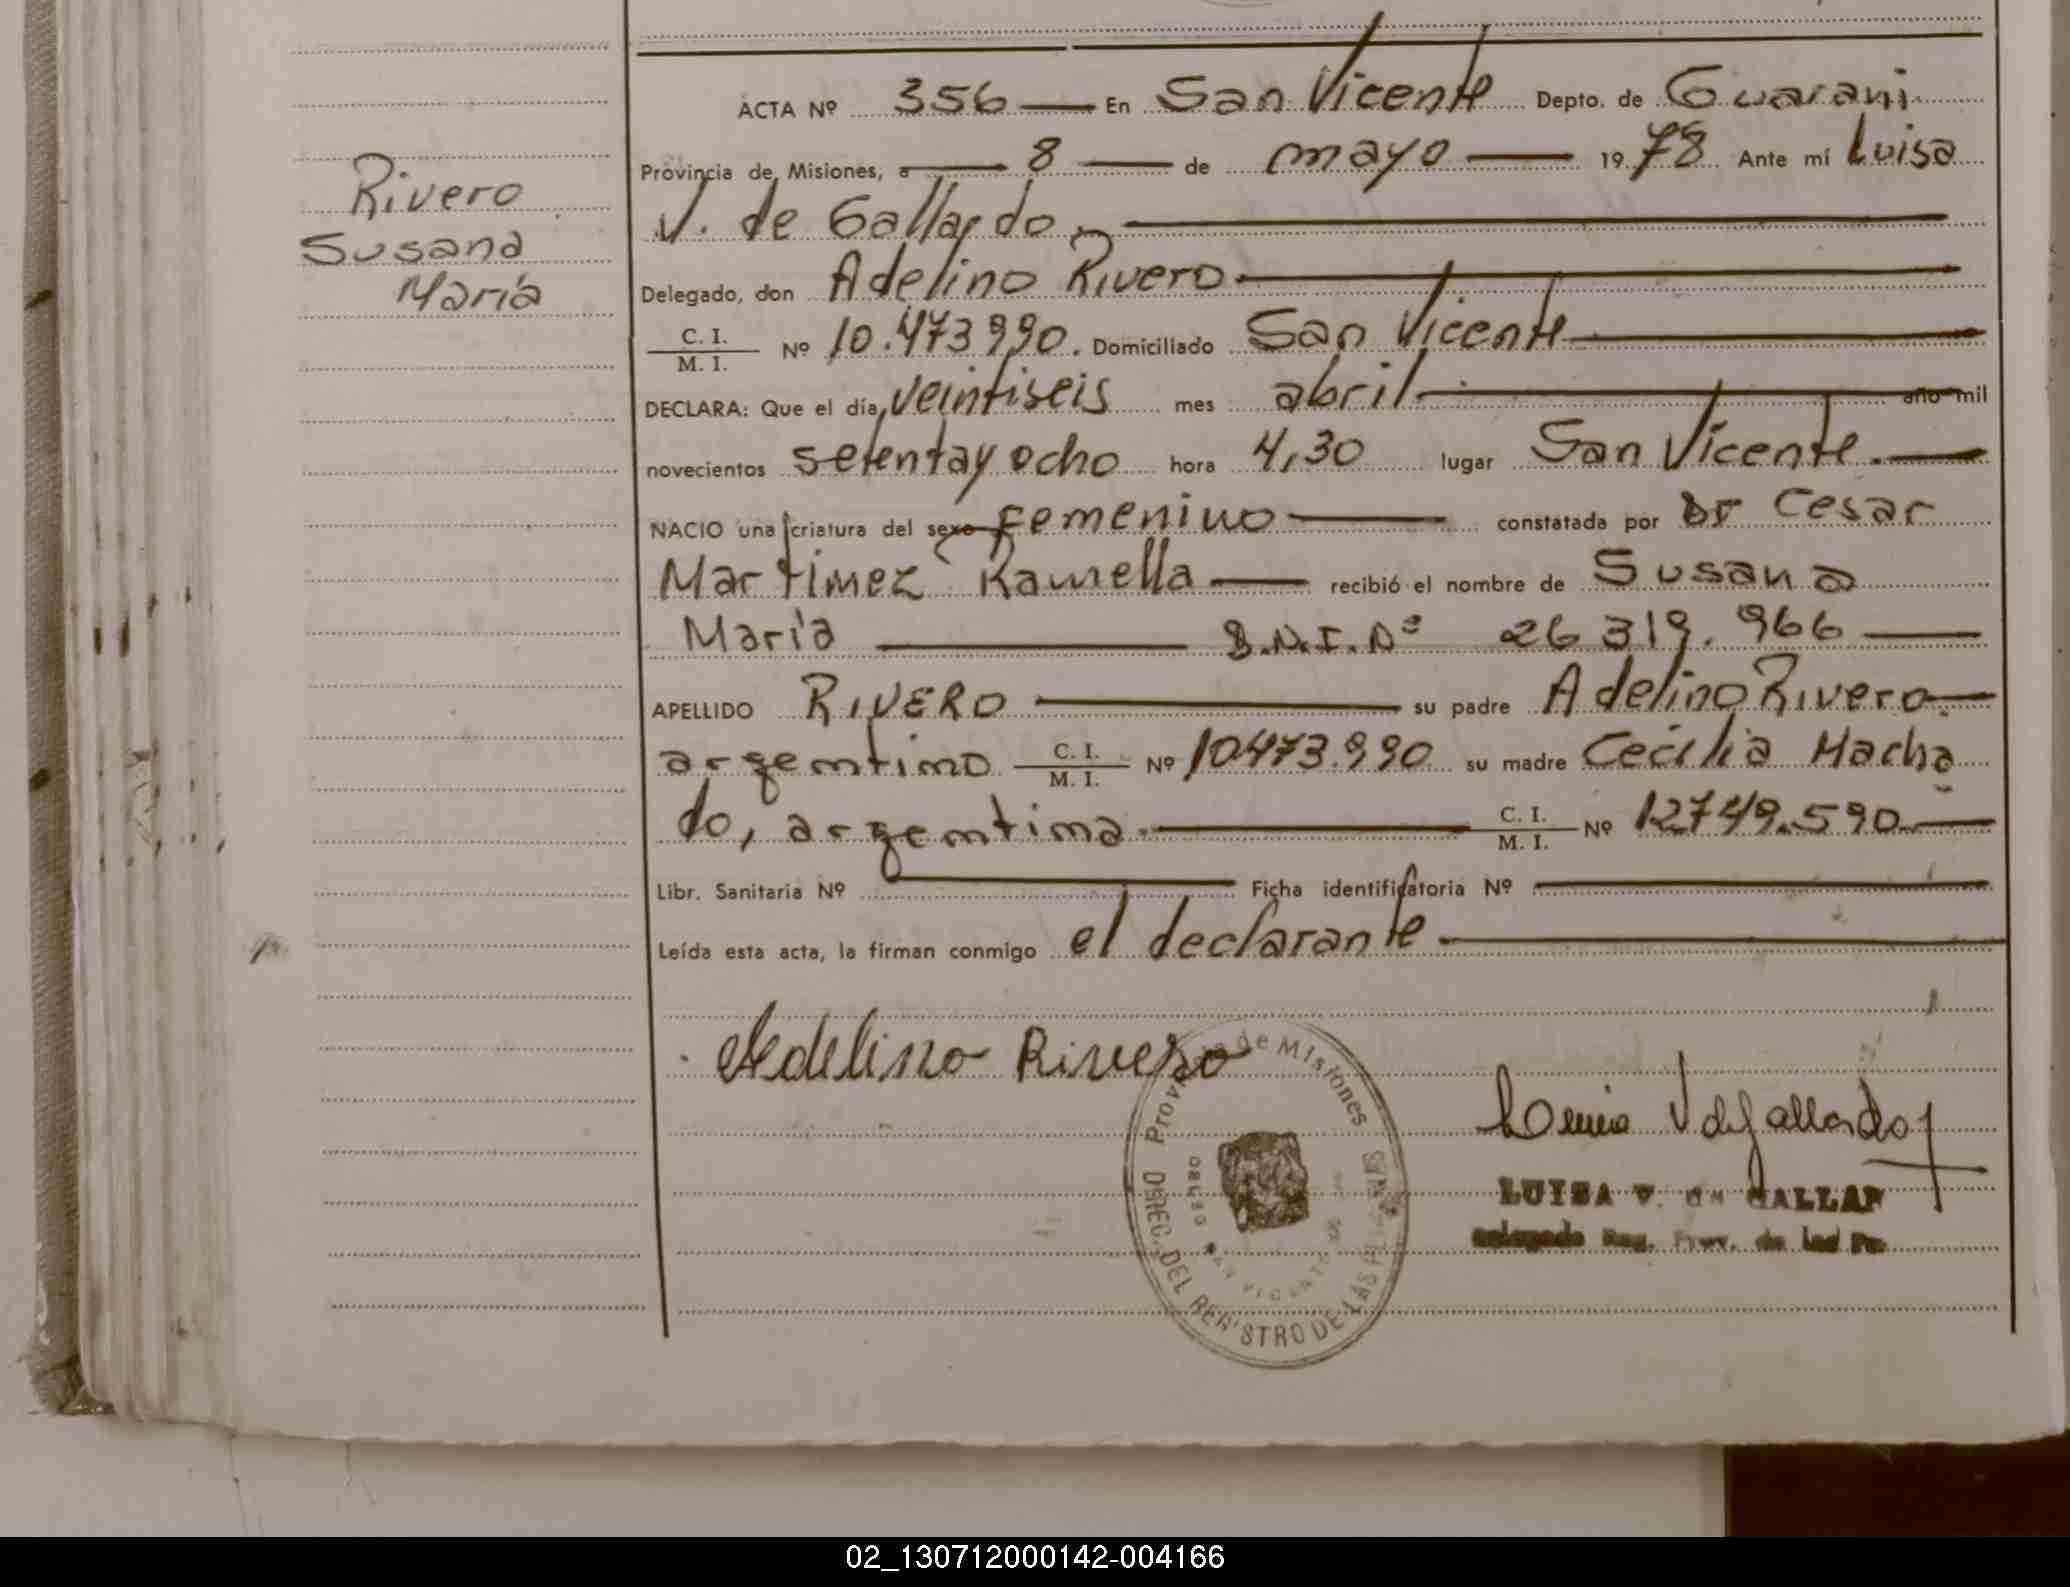 ACTA Nº 356 En San Vicente Depto. de Guarani
Rivero
Susana
Maria
Provincia de Misiones, a 8 de mayo 1978 Ante mí Luisa
V. de Gallardo
Delegado, don Adelino Rivero
C. I.
M. I. Nº 10.473990. Domiciliado San Vicente
DECLARA: Que el día, veintiseis mes abril año mil
novecientos setentay ocho hora 4,30 lugar San Vicente.
NACIO una criatura del sexo Femenino constatada por Dr Cesar
Martinez Ramella recibió el nombre de Susana
María D.N.I.Nº 26 319.966
APELLIDO RIVERO su padre Adelino Rivero
argentino C. I.
M. I. Nº 10473.990 su madre Cecilia Macha
do, argentina. C. I.
M. I. Nº 12749.590
Libr. Sanitaria Nº Ficha identificatoria Nº
Leída esta acta, la firman conmigo el declarante
Adelino Rivero
Provincia de Misiones
DIREC. DEL REGISTRO DE LAS
SAN VICENTE
Luisa V de Gallardo
LUISA V. de GALLAR
Delegada Reg. Prov. de las Pe
02_130712000142-004166